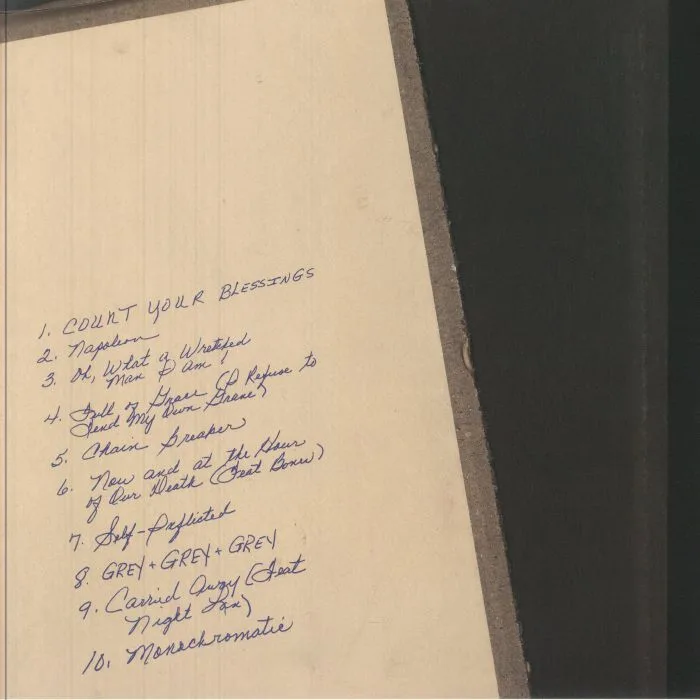 1. COUNT YOUR BLESSINGS
2. Napoleon
3. Oh, What a Wretched
Man I am!
4. Full of Grace (I Refuse to
Tend My Own Grave)
5. Chain Breaker
6. Now and at the Hour
of Our Death (Feat Bones)
7. Self-Inflicted
8. GREY + GREY + GREY
9. Carried Away (Feat
Night Lax)
10. Monochromatic